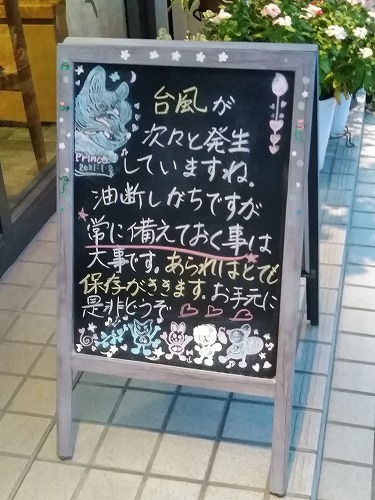 Prince
2021.1.8
台風が
次々と発生
していますね。
油断しがちですが
常に備えておく事は
大事です。あられはとても
保存がききます。お手元に
是非どうぞ